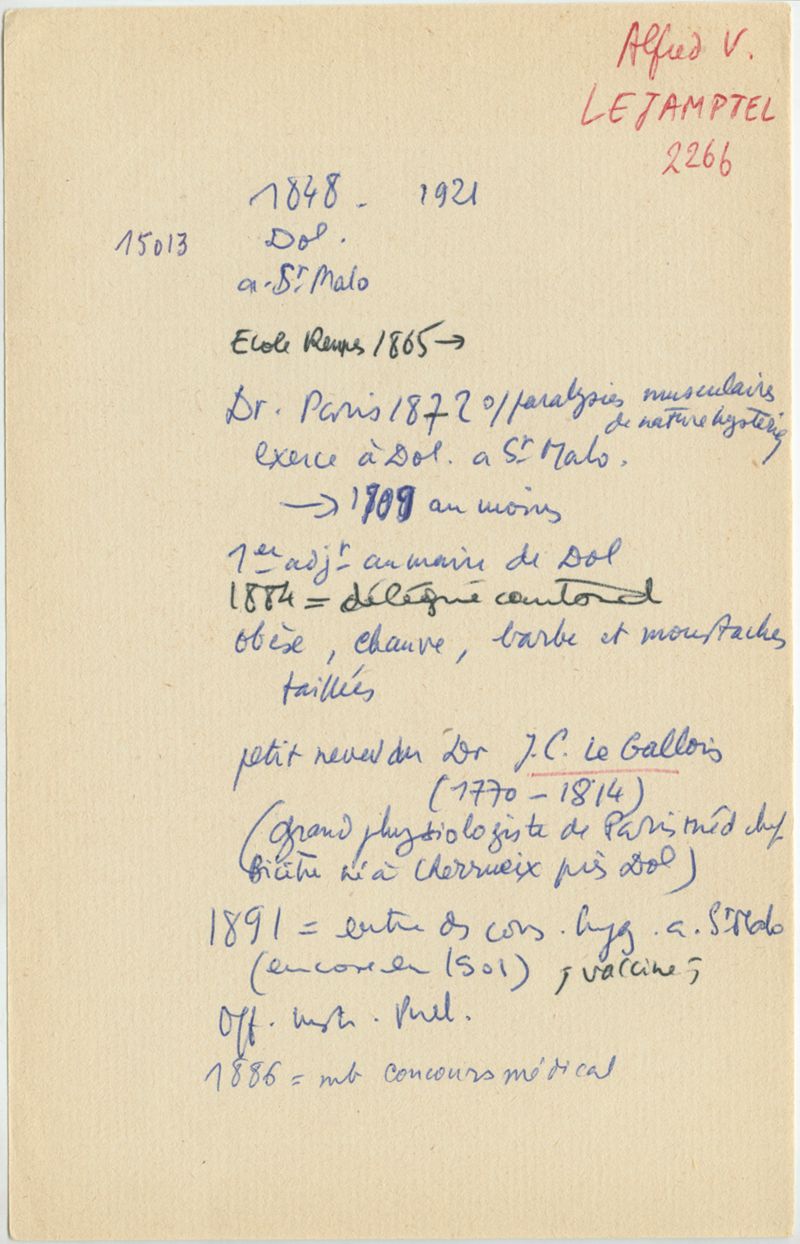 Alfred V.
LEJAMPTEL
2266
1848 - 1921
15013 Dol.
a. St Malo
Ecole Rennes 1865 →
Dr. Paris 1872 o/ paralysies musculaires
de nature hystérie
exerce à Dol. a St Malo.
→ 1909 au moins
1er adjt au maire de Dol
1884 = délégué cantonal
obèse, chauve, barbe et moustaches
taillées
petit neveu du Dr J.C. Le Gallois
(1770 - 1814)
(grand physiologiste de Paris méd chef
Bicêtre né à Cherrueix près Dol)
1891 = entre ds cons. hyg. a. St Malo
(encore en 1901) , vaccine ,
Off. Instr. Publ.
1886 = mb concours médical